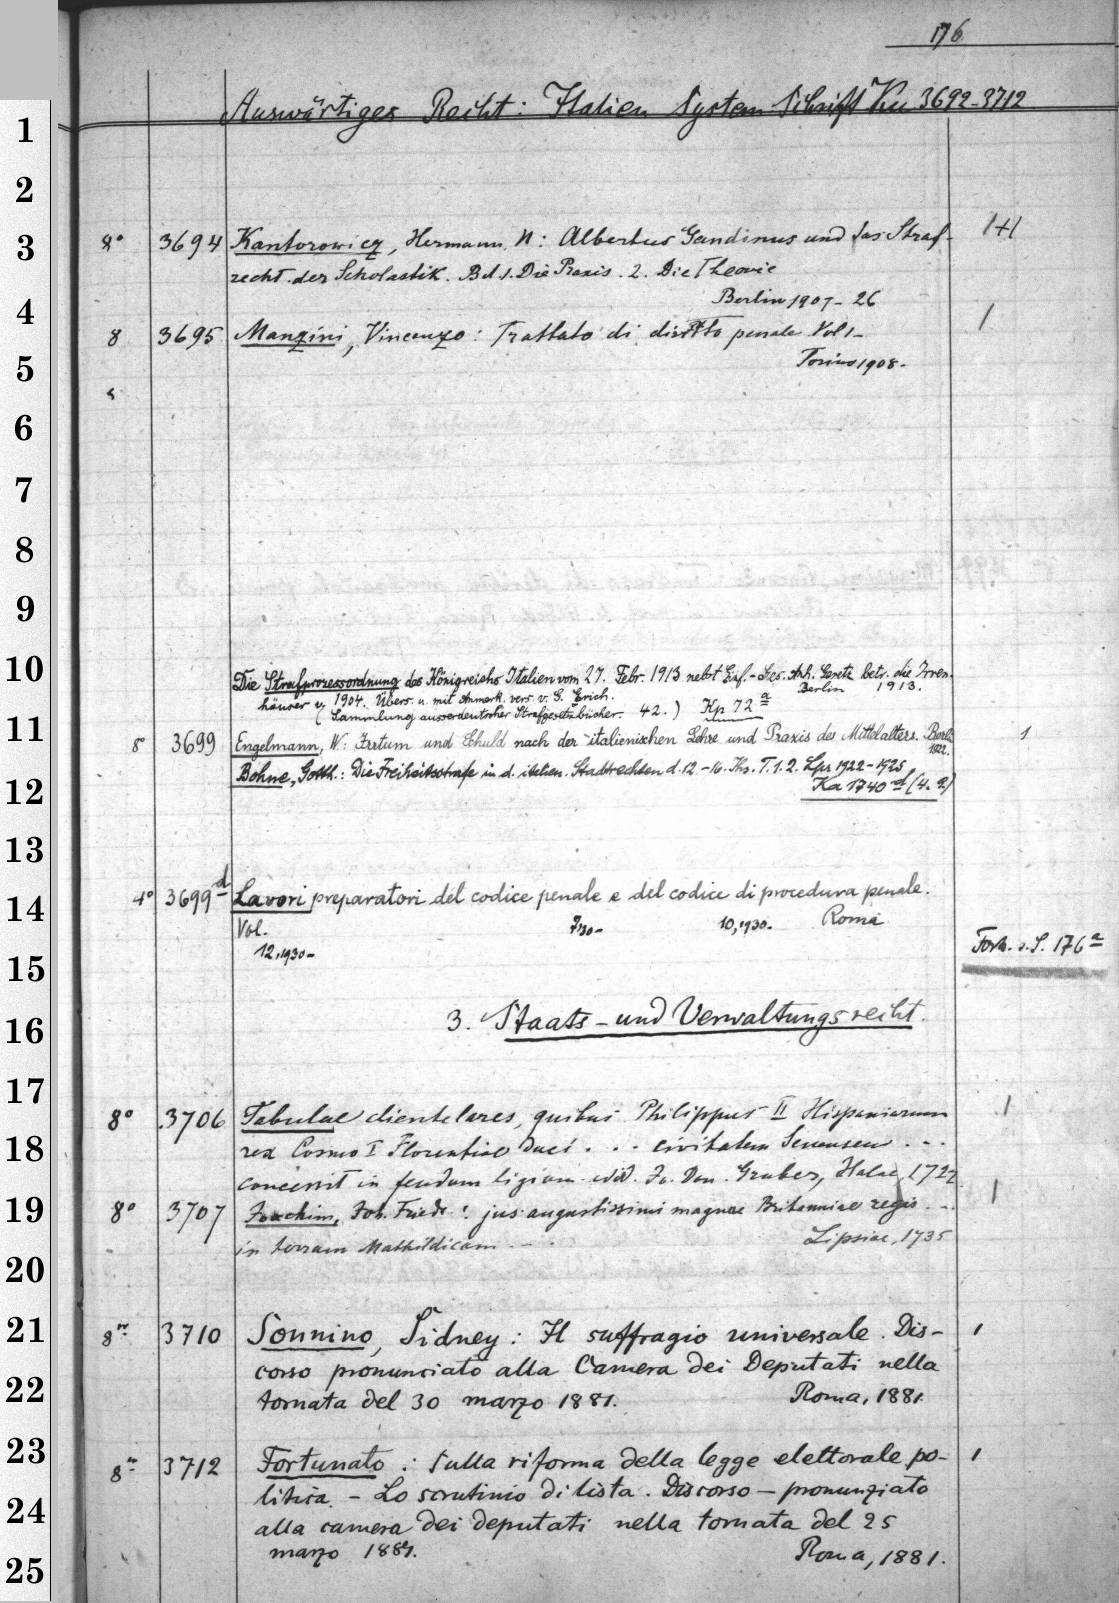 176
Auswärtiges Recht: Italien System Schrift Ku 3692-3712
1
2
3
8° 3694 Kantorowicz, Hermann N: Albertus Gandinus und das Straf- 1+1
recht der Scholastik. Bd 1. Die Praxis. 2. Die Theorie
Berlin 1907-26
4
8 3695 Manzini, Vincenzo: Trattato di diritto penale Vol 1- 1
Torino 1908-
5
6
7
8
9
10
Die Strafprozessordnung des Königreichs Italien vom 27. Febr. 1913 nebst Einf.-Ges. Anh. Gesetz betr. die Irren-
häuser v. 1904. Übers. u. mit Anmerk. vers. v. G. Erich. Berlin 1913.
(Sammlung ausserdeutscher Strafgesetzbücher. 42.) Kp 72 a
11
8° 3699 Engelmann, W: Irrtum und Schuld nach der italienischen Lehre und Praxis des Mittelalters. Berli 1922. 1
Bohne, Gotth.: Die Freiheitsstrafe in d. italien. Stadtrechten d. 12.-16. Jhs. T. 1.2. Lpz 1922-1925
Ka 1740 d (4. 2)
12
13
14
4° 3699 d Lavori preparatori del codice penale e del codice di procedura penale.
Vol. 7,30- 10,1930- Roma
12,1930-
Forts. s. S. 176 a
15
3. Staats- und Verwaltungsrecht.
16
17
8° 3706 Tabulae clientelares, quibus Philippus II Hispaniarum 1
rex Cosmo I Florentiae duci . . . civitatem Senensem . . .
18
concessit in feudum ligium. edid. Jo. Dan. Gruber, Halae, 1722
19
8° 3707 Joachim, Joh. Friedr.: jus augustissimi magnae Britanniae regis . . 1
in terram Mathildicam . . . Lipsiae, 1735
20
21
8° 3710 Sonnino, Sidney: Il suffragio universale. Dis- 1
corso pronunciato alla Camera dei Deputati nella
22
tornata del 30 marzo 1881. Roma, 1881.
23
8° 3712 Fortunato: Sulla riforma della legge elettorale po- 1
litica. - Lo scrutinio di lista. Discorso - pronunziato
24
alla camera dei deputati nella tornata del 25
marzo 1881. Roma, 1881.
25